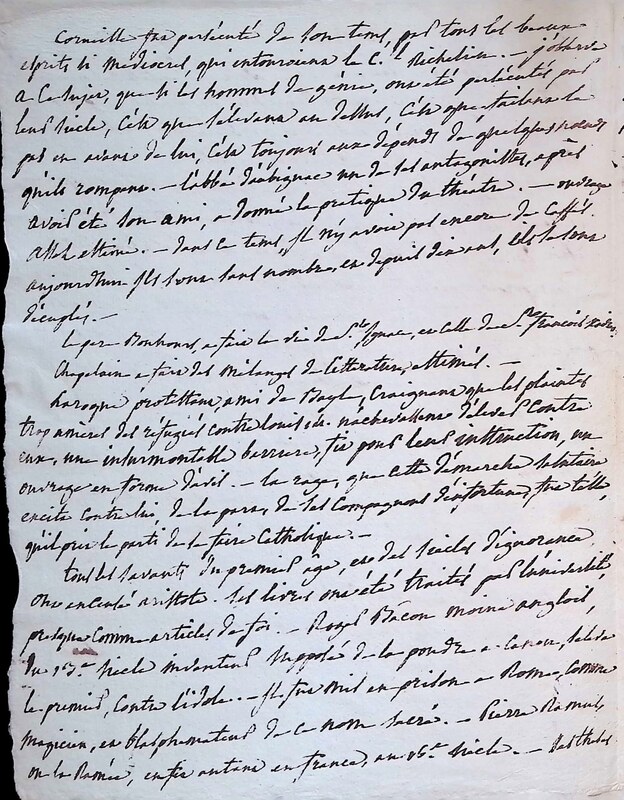 Corneille fut persécuté de son tems, par tous les beaux
esprits si médiocres, qui entouroient le C.al Richelieu. — j'observe
a ce sujet, que si les hommes de génie, ont été persécutés par
leur siecle, c'est que s'élevant au dessus, c'est que s'élançant
pas en avant de lui, c'est toujours aux dépends de quelques nœuds
qu'ils rompent. — l'abbé d'aubignac un de ses antagonistes, après
avoir été son ami, a donné la pratique du théatre. — ouvrage
assés estimé. — dans ce tems, il n'y avoit pas encore de caffés.
aujourdhui ils sont sans nombre, et depuis dix ans, ils se sont
décuplés. —
Le pere Bouhours, a fait la vie de S.t Ignace, et celle de S.t françois Xavier,
Chapelain a fait des mélanges de littérature, estimés. —
Laroque protestant, ami de Bayle, craignant que les plaintes
trop ameres des réfugiés contre louis 14. n'achevassent d'élever contre
eux, une insurmontable barriere, fit pour leur instruction, un
ouvrage en forme d'avis. — la rage, que cette démarche salutaire
excita contre lui, de la part, de ses compagnons d'infortune, fut telle
qu'il prit le parti de se faire catholique. —
tous les savants du premier âge, et des siecles d'ignorance
ont encensé aristote. ses livres ont été traités par l'université
presque comme articles de foi. — Roger Bacon moine anglois,
du 13.me siecle inventeur supposé de la poudre a canon, s'éleva
le premier, contre l'idole. — il fut mis en prison a Rome, comme
magicien, et blasphemateur de ce nom sacré. — Pierre Ramus,
ou la Ramée, en fit autant en france, au 16.me siecle. —